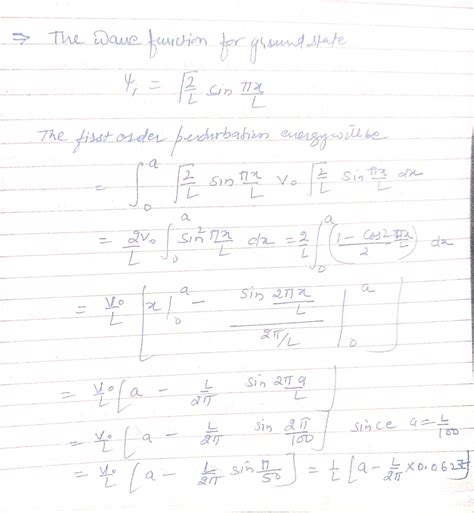 ⇒ The wave function for ground state
ψ₁ = √(2/L) sin πx/L
The first order perturbation energy will be
= ∫₀ᵃ √(2/L) sin πx/L V₀ √(2/L) sin πx/L dx
= 2V₀/L ∫₀ᵃ sin² πx/L dx = 2/L ∫₀ᵃ ((1 - cos 2πx/L)/2) dx
= V₀/L [x|₀ᵃ - (sin 2πx/L)/(2π/L) |₀ᵃ]
= V₀/L [a - L/2π sin 2πa/L]
= V₀/L [a - L/2π sin 2π/100] since a = L/100
= V₀/L [a - L/2π sin π/50] = 1/L [a - L/2π × 0.0627]